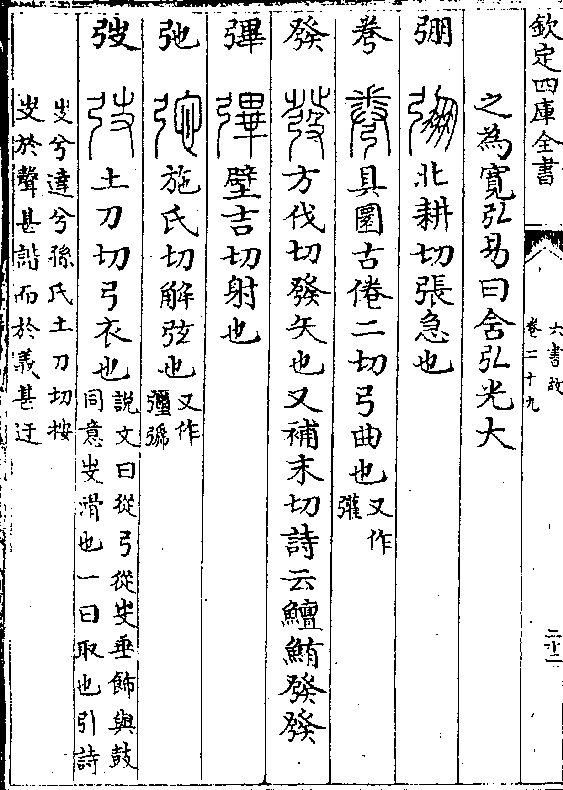 欽定四庫全書
六書故
卷二十九
二十二
之為寛弘易曰含弘光大
弸 北耕切張急也
弮 具圜古倦二切弓曲也又作
發 方伐切發矢也又補末切詩云鱣鮪發發
彃 壁吉切射也
弛 施氏切解弦也又作彌𢐋
弢 土刀切弓衣也說文曰從弓從𠬢垂飾與鼓
同意𠬢滑也一曰取也引詩
𠬢兮達兮孫氏土刀切按
𠬢於聲甚諧而於義甚迂